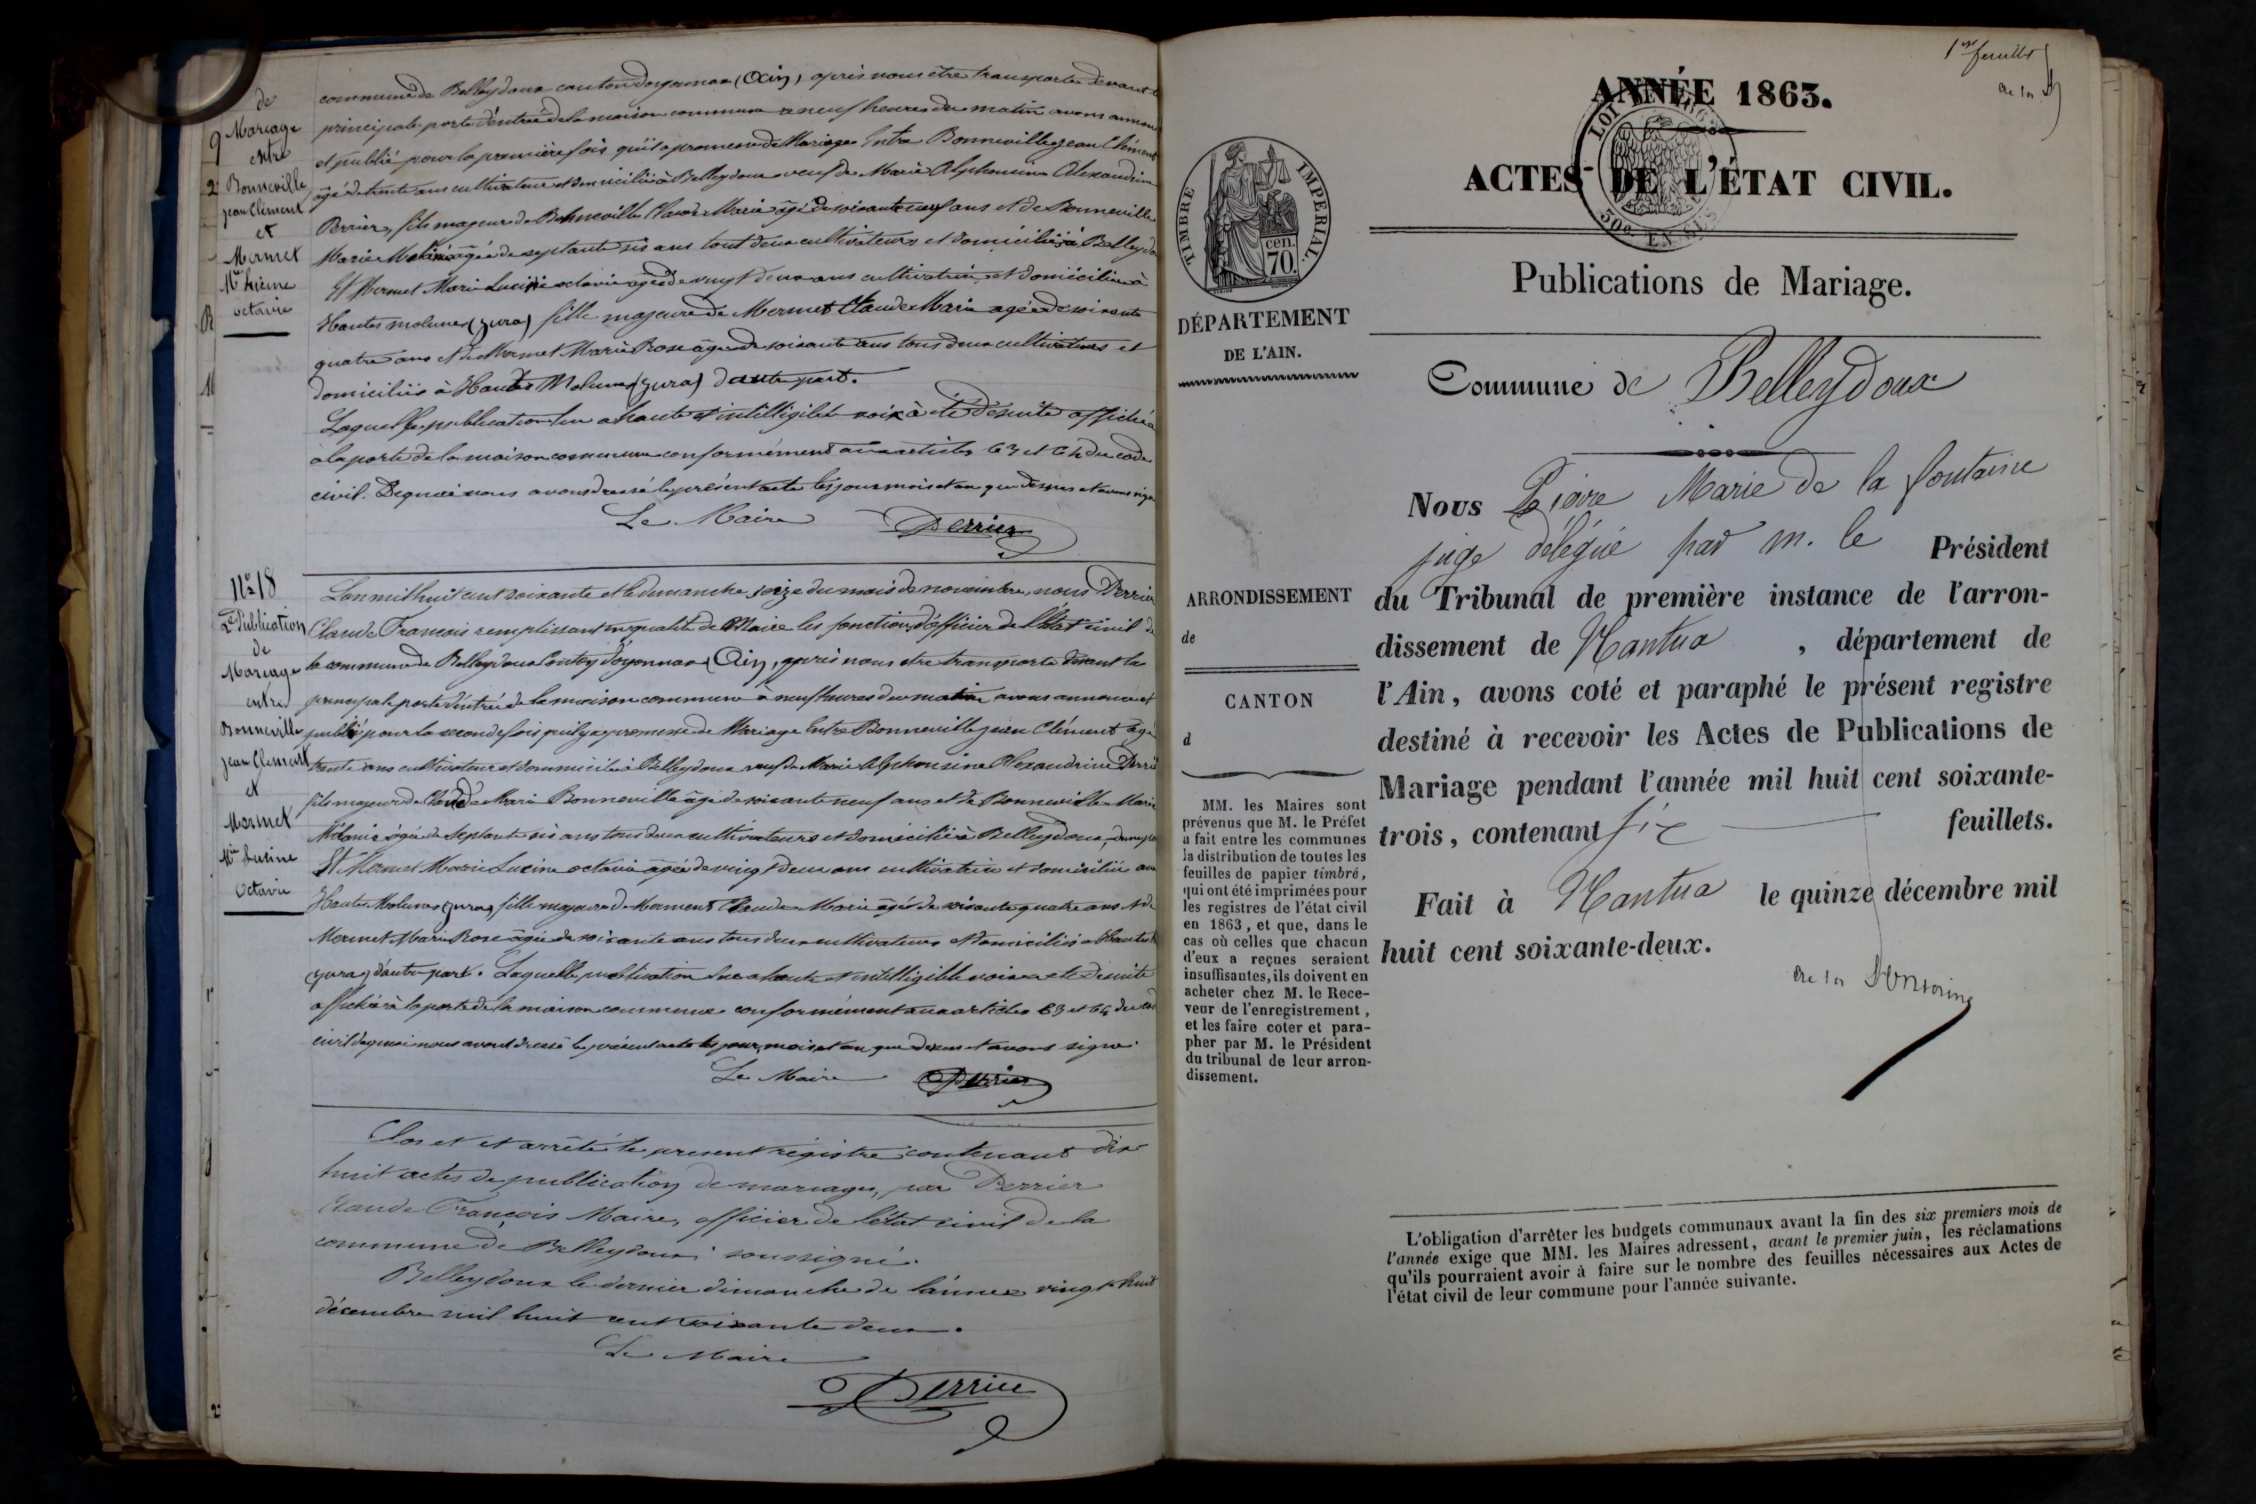 de
Mariage
entre
Bonneville
jean Clément
et
Mermet
Mie Lucine
octavie
commune de Belleydoux canton doyonnax (Ain), après nous être transporté devant la
principale porte d'entrée de la maison commune a neuf heures du matin avons annoncé
et publié pour la première fois qu'il a promesse de Mariage Entre Bonneville jean Clément
âgé de trente ans cultivateur et domicilié à Belleydoux veuf de Marie Alphonsine Alexandrine
Perrier, fils majeur de Bonneville Claude Marie âgé de soixante neuf ans et de Bonneville
Marie Mélanie âgée de septante six ans tout deux cultivateurs et domiciliés à Belleydoux
Et Mermet Marie Lucine octavie âgée de vingt deux ans cultivatrice et domiciliée à
Hautes molunes (jura) fille majeure de Mermet Claude Marie agé de soixante
quatre ans et de Mermet Marie Rose âgée de soixante ans tous deux cultivateurs et
domiciliés à Hautes Molunes (jura) d'autre part.
Laquelle publication lue a haute et intilligible voix à été désuite affichée
à la porte de la maison commune conformément aux articles 63 et 64 du code
civil. De quoi nous avons dressé le présent acte les jour mois et an que dessus et avons signé
Le Maire Perrier
No 18
2e Publication
de
Mariage
entre
Bonneville
jean Clement
et
Mermet
Mie Lucine
Octavie
Lan mil huit cent soixante et le dimanche seize du mois de novembre, nous Perrier
Claude Francois remplissant en qualité de Maire les fonctions d'officier de l'Etat civil de
la commune de Belleydoux Canton d'oyonnax (Ain), après nous etre transporté devant la
principale porte d'entrée de la maison commune à neuf heures du matin avons annoncé et
publié pour la seconde fois qu'il y a promesse de Mariage Entre Bonneville jean Clément âgé
trente ans cultivateur et domicilié à Belleydoux veuf de Marie Alphonsine Alexandrine Perrier
fils majeur de Claude Marie Bonneville âgé de soixante neuf ans et de Bonneville Marie
Mélanie âgée de septante six ans tous deux cultivateurs et domiciliés à Belleydoux, d'une part
Et Mermet Marie Lucine octavie âgée de vingt deux ans cultivatrice et domiciliée aux
Hautes Molunes (jura) fille majeure de Mermet Claude Marie âgé de soixante quatre ans et de
Mermet Marie Rose âgée de soixante ans tous deux cultivateurs et domiciliés a Hautes M
(jura) d'autre part. Laquelle publication lue a haute et intelligible voix a eté de suite
affichée à la porte de la maison commune conformément aux articles 63 et 64 du cod
civil de quoi nous avons dressé le présent acte les jour, mois et an que dessus et avons signé.
Le Maire Perrier
Clos et et arrêté le present régistre contenant dix
huit actes de publication de mariages, par Perrier
Claude François Maire, officier de l'état civil de la
commune de Belleydoux soussigné.
Belleydoux le dernier dimanche de l'année vingt huit
décembre mil huit cent soixante deux.
Le Maire
Perrier
1er feuillet
ANNÉE 1863.
ACTES DE L'ÉTAT CIVIL.
Publications de Mariage.
TIMBRE IMPÉRIAL.
cen.
70.
DÉPARTEMENT
DE L'AIN.
Commune de Belleydoux
Nous Pierre Marie De la fontaine
juge délégué par m. le Président
du Tribunal de première instance de l'arron-
dissement de Nantua , département de
l'Ain, avons coté et paraphé le présent registre
destiné à recevoir les Actes de Publications de
Mariage pendant l'année mil huit cent soixante-
trois, contenant six feuillets.
Fait à Nantua le quinze décembre mil
huit cent soixante-deux.
ARRONDISSEMENT
de
CANTON
d
MM. les Maires sont
prévenus que M. le Préfet
a fait entre les communes
la distribution de toutes les
feuilles de papier timbré,
qui ont été imprimées pour
les registres de l'état civil
en 1863, et que, dans le
cas où celles que chacun
d'eux a reçues seraient
insuffisantes, ils doivent en
acheter chez M. le Rece-
veur de l'enregistrement,
et les faire coter et para-
pher par M. le Président
du tribunal de leur arron-
dissement.
L'obligation d'arrêter les budgets communaux avant la fin des six premiers mois de
l'année exige que MM. les Maires adressent, avant le premier juin, les réclamations
qu'ils pourraient avoir à faire sur le nombre des feuilles nécessaires aux Actes de
l'état civil de leur commune pour l'année suivante.